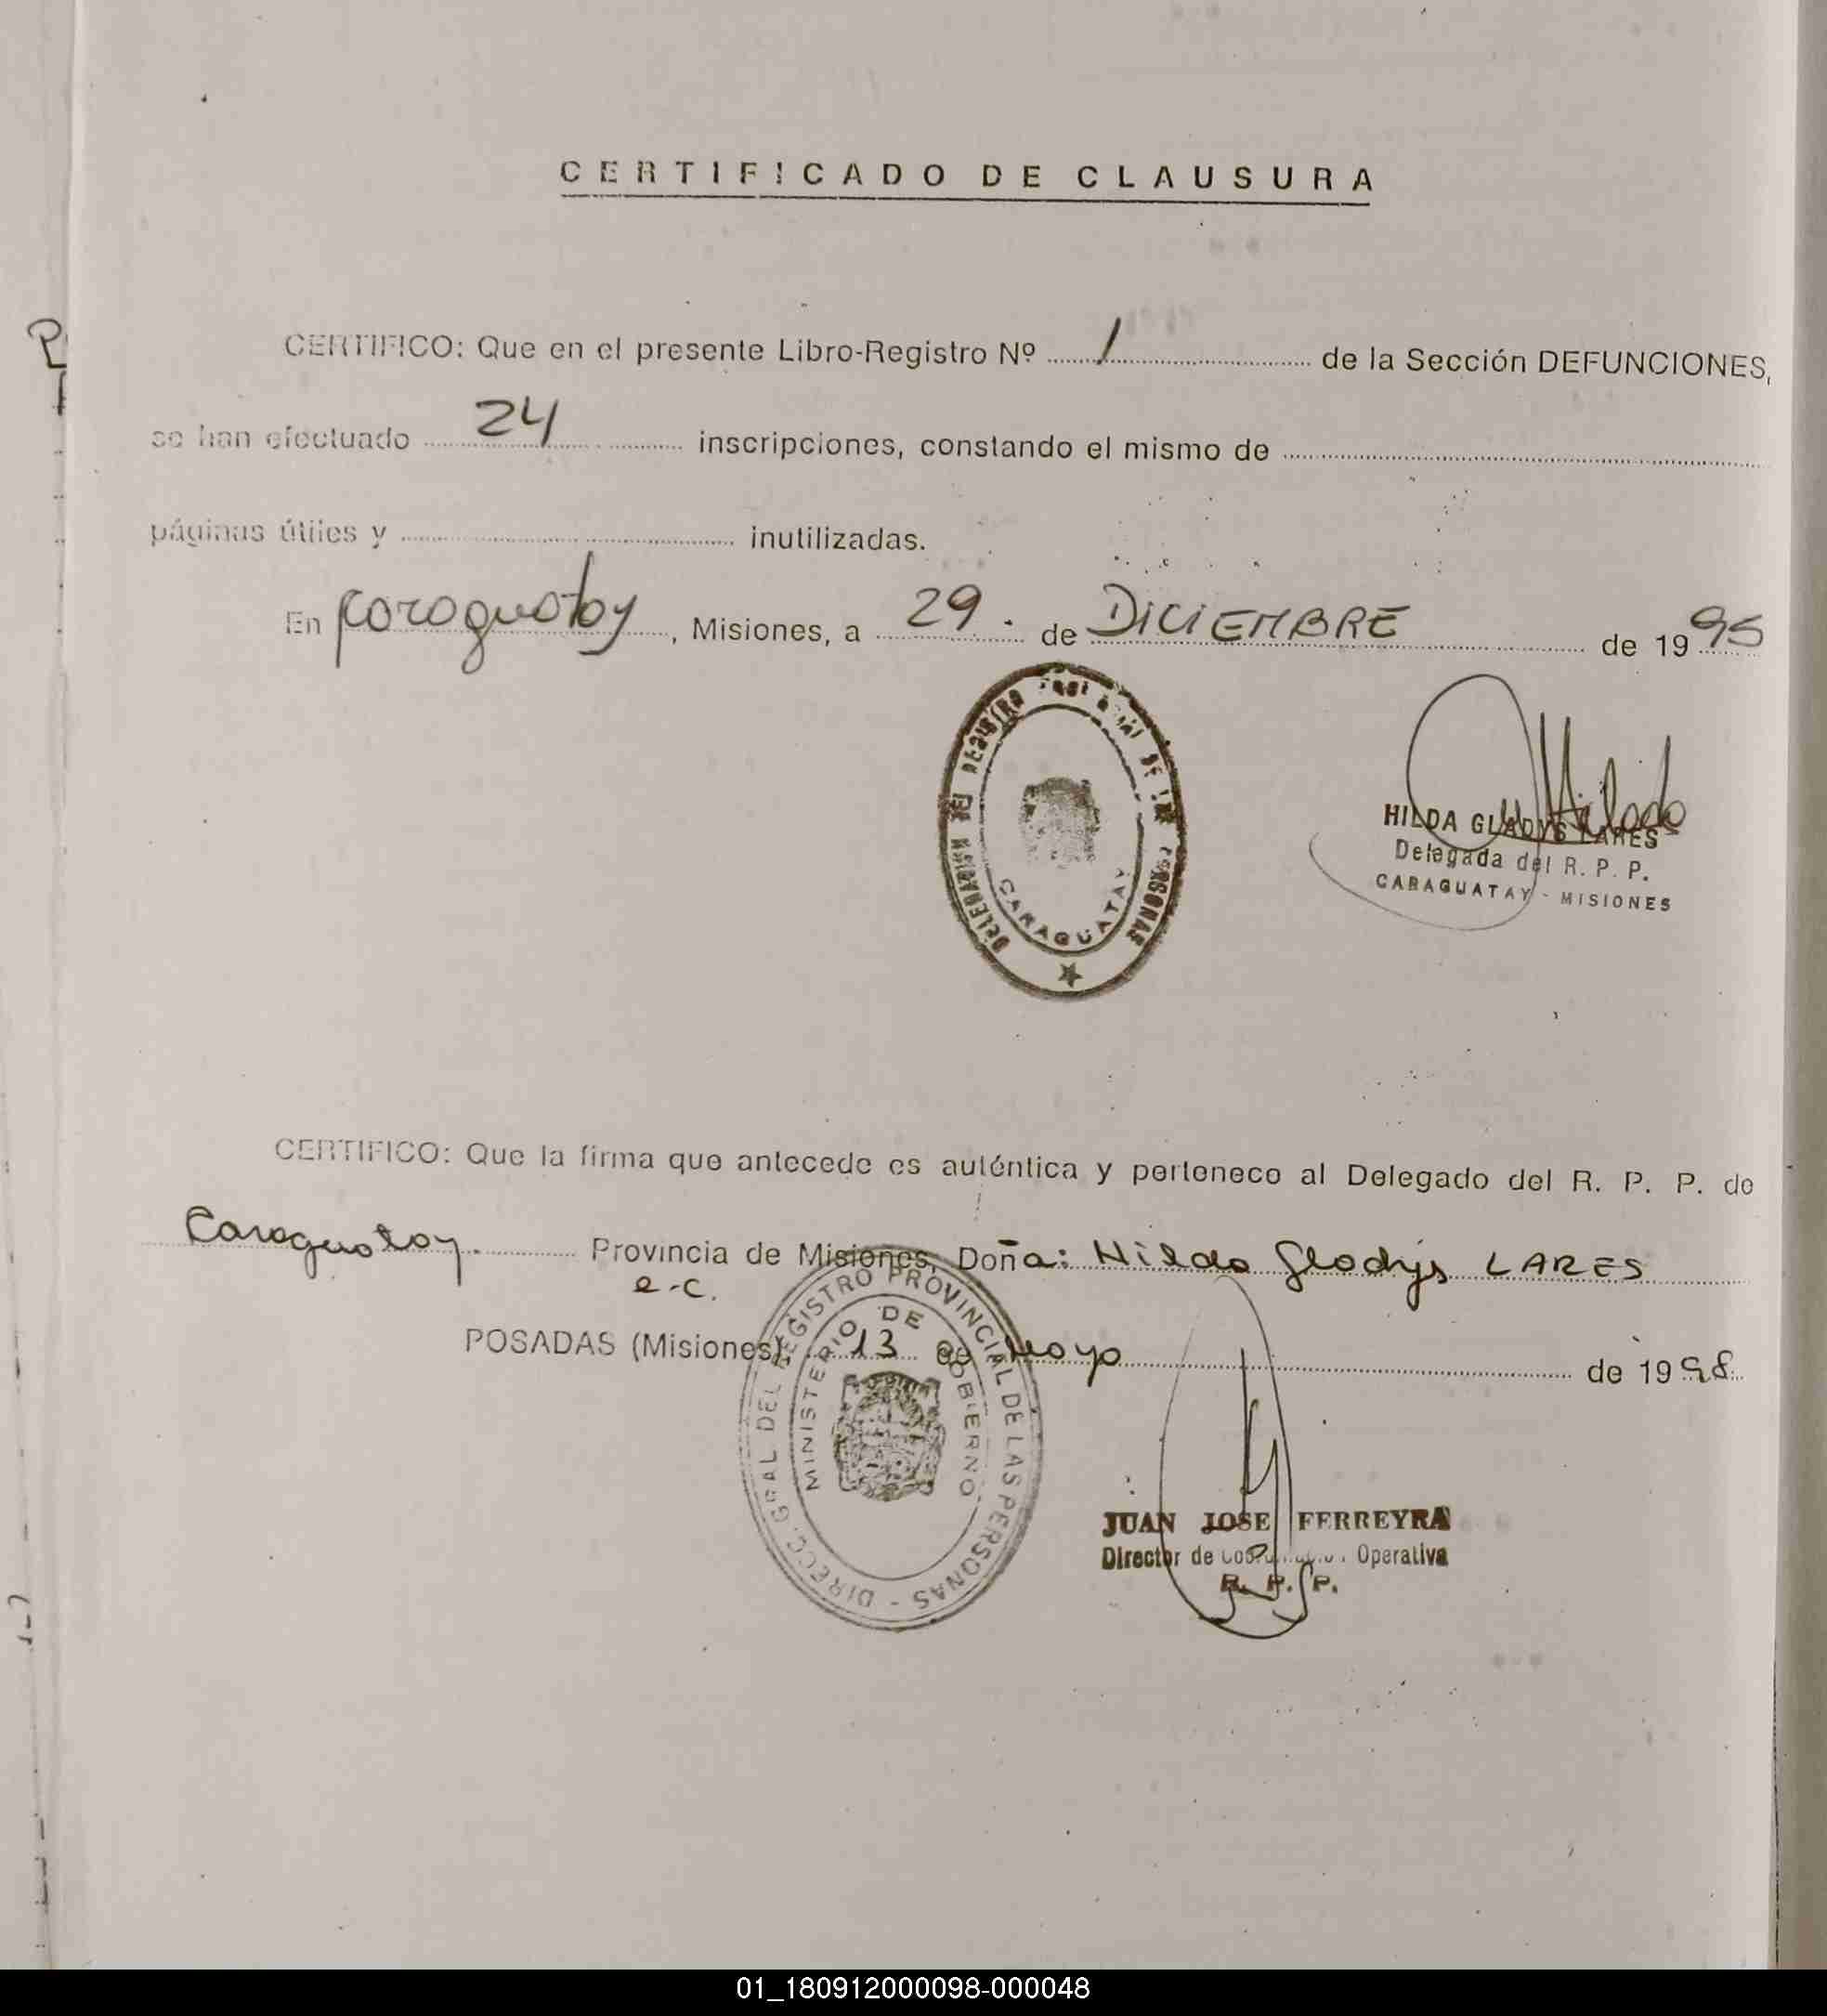 CERTIFICADO DE CLAUSURA
CERTIFICO: Que en el presente Libro-Registro Nº 1 de la Sección DEFUNCIONES,
se han efectuado 24 inscripciones, constando el mismo de
páginas útiles y inutilizadas.
En Caraguatay, Misiones, a 29 de DICIEMBRE de 1995
DELEGACION DEL REGISTRO PROVINCIAL DE LAS PERSONAS
CARAGUATAY
HILDA GLADYS LARES
Delegada del R. P. P.
CARAGUATAY - MISIONES
CERTIFICO: Que la firma que antecede es auténtica y pertenece al Delegado del R. P. P. de
Caraguatay. Provincia de Misiones, Doña: Hilda Gladys LARES
e-c.
POSADAS (Misiones), 13 de Mayo de 1998
DIRECC. GRAL DEL REGISTRO PROVINCIAL DE LAS PERSONAS -
MINISTERIO DE GOBIERNO
JUAN JOSE FERREYRA
Director de Operativa
R. P. P.
01_180912000098-000048